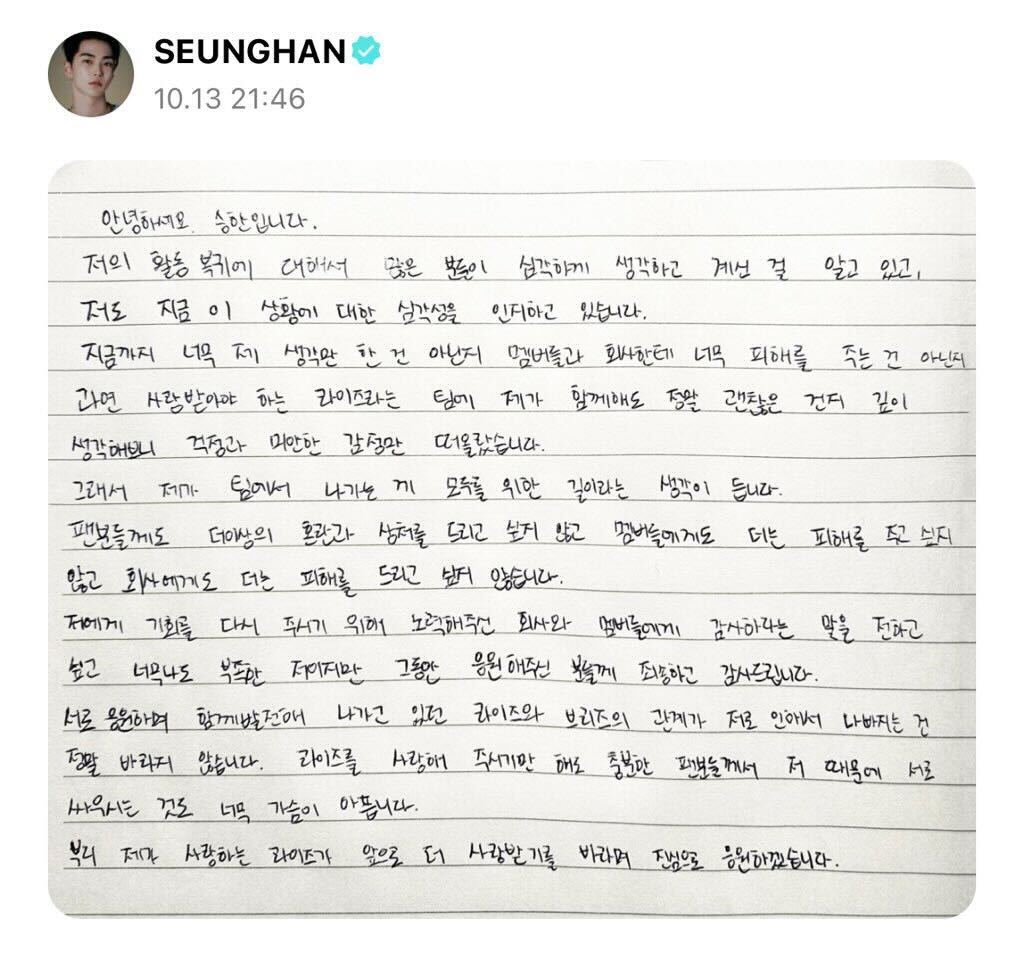 SEUNGHAN
10.13 21:46
안녕하세요. 승한입니다.
저의 활동 복귀에 대해서 많은 분들이 심각하게 생각하고 계신 걸 알고 있고,
저도 지금 이 상황에 대한 심각성을 인지하고 있습니다.
지금까지 너무 제 생각만 한 건 아닌지 멤버들과 회사한테 너무 피해를 주는 건 아닌지
과연 사랑받아야 하는 라이즈라는 팀에 제가 함께해도 정말 괜찮은 건지 깊이
생각해보니 걱정과 미안한 감정만 떠올랐습니다.
그래서 제가 팀에서 나가는 게 모두를 위한 길이라는 생각이 듭니다.
팬분들께도 더이상의 혼란과 상처를 드리고 싶지 않고 멤버들에게도 더는 피해를 주고 싶지
않고 회사에게도 더는 피해를 드리고 싶지 않습니다.
저에게 기회를 다시 주시기 위해 노력해주신 회사와 멤버들에게 감사하라는 말을 전하고
싶고 너무나도 부족한 저이지만 그동안 응원해주신 분들께 죄송하고 감사드립니다.
서로 응원하며 함께발전해 나가고 있던 라이즈와 브리즈의 관계가 저로 인해서 나빠지는 건
정말 바라지 않습니다. 라이즈를 사랑해 주시기만 해도 충분한 팬분들께서 저 때문에 서로
싸우시는 것도 너무 가슴이 아픕니다.
부디 제가 사랑하는 라이즈가 앞으로 더 사랑받기를 바라며 진심으로 응원하겠습니다.